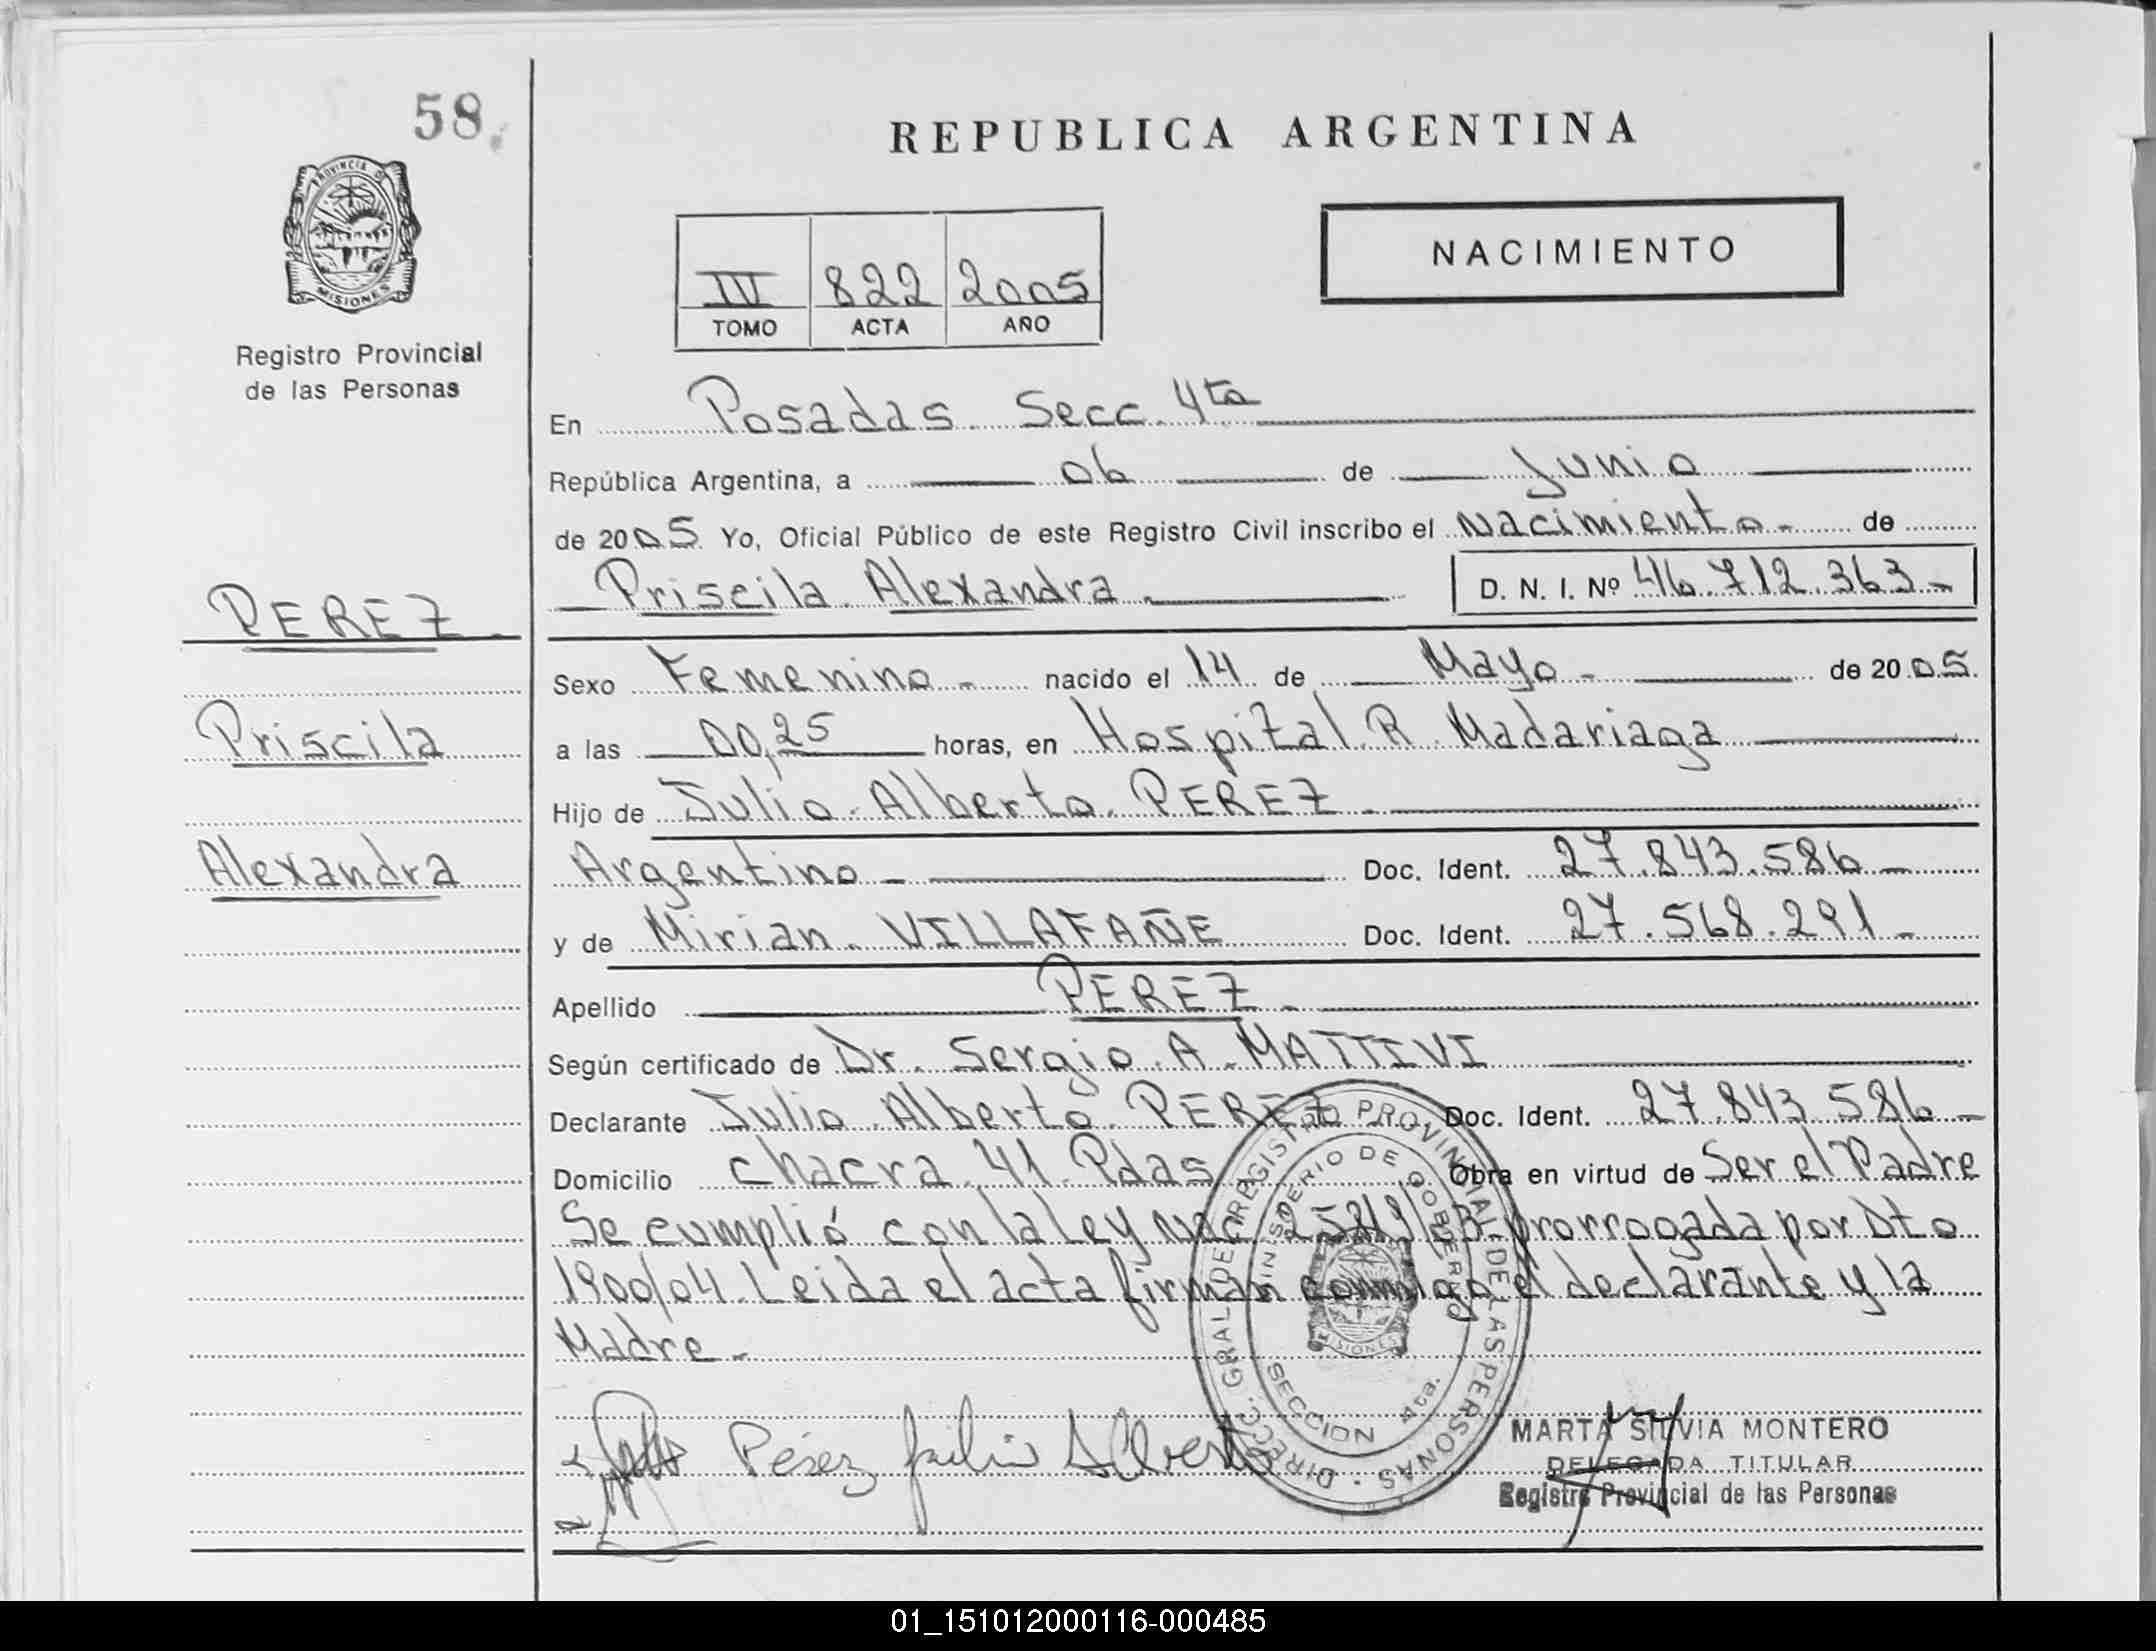 58
REPUBLICA ARGENTINA
PROVINCIA DE
MISIONES
NACIMIENTO
822 2005
TOMO ACTA AÑO
Registro Provincial
de las Personas
En Posadas Secc 4ta
República Argentina, a 06 de Junio
de 2005 Yo, Oficial Público de este Registro Civil inscribo el Nacimiento - de
PEREZ
Priscila Alexandra D. N. I. Nº 46.712.363-
Sexo Femenino - nacido el 14 de Mayo - de 2005
Priscila
a las 00,25 horas, en Hospital R. Madariaga
Hijo de Julio Alberto PEREZ
Alexandra
Argentino - Doc. Ident. 27.843.586-
y de Mirian VILLAFAÑE Doc. Ident. 27.568.291-
Apellido PEREZ -
Según certificado de Dr. Sergio A. MATTIVI
Declarante Julio Alberto PEREZ Doc. Ident. 27.843.586-
Domicilio chacra 41 Pdas Obra en virtud de Ser el Padre
Se cumplió con la ley prorrogada por Dto
1900/04. Leida el acta firman conmigo el declarante y la
Madre -
Pérez Julio Alberto
DIRECC. GRAL DE REGISTRO PROVINCIAL DE LAS PERSONAS
MINISTERIO DE GOBIERNO
MISIONES
SECCION 4ta.
MARTA SILVIA MONTERO
DELEGADA TITULAR
Registro Provincial de las Personas
01_151012000116-000485